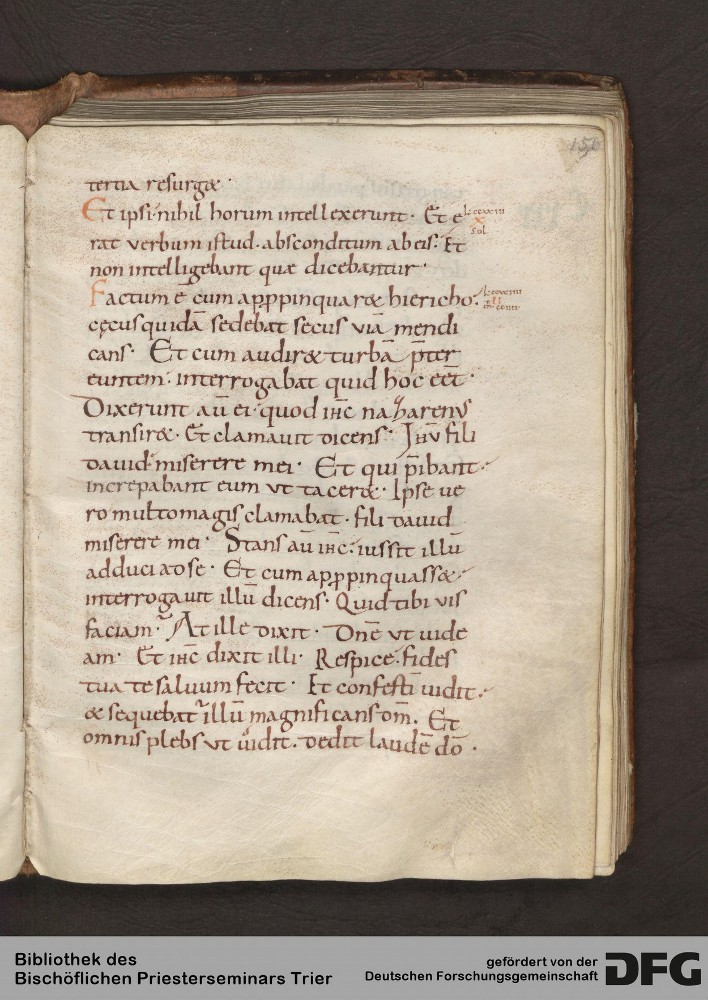 156
tertia resurg&·
Et ipsi·nihil horum intellexerunt· Et e
rat verbum istud·absconditum ab eis· Et
non intelligebant quæ dicebantur·
Factum ē cum app̱ropinquar& hiericho·
cęcus quidā sedebat secus viā mendi
cans· Et cum audir& turbā p̄ter
euntem· interrogabat quid hoc eēt·
Dixerunt aū ei·quod ih̄c nazarenus
transir&· Et clamavit dicens· Ih̄u fili
david·miserere mei· Et qui p̄ibant·
increpabant eum ut tacer&· Ipse ve
ro multo magis clamabat· fili david
miserere mei· Stans aū ih̄c·iussit illū
adduci ad se· Et cum appropinquass&·
interrogavit illū dicens· Quid tibi vis
faciam· At ille dixit· Dn̄e ut vide
am· Et ih̄c dixit illi· Respice·fides
tua te salvum fecit· Et confestī vidit·
& sequebat illū magnificans dm̄. Et
omnis plebs ut vidit· dedit laudē dō·
Bibliothek des
Bischöflichen Priesterseminars Trier
gefördert von der
Deutschen Forschungsgemeinschaft
DFG